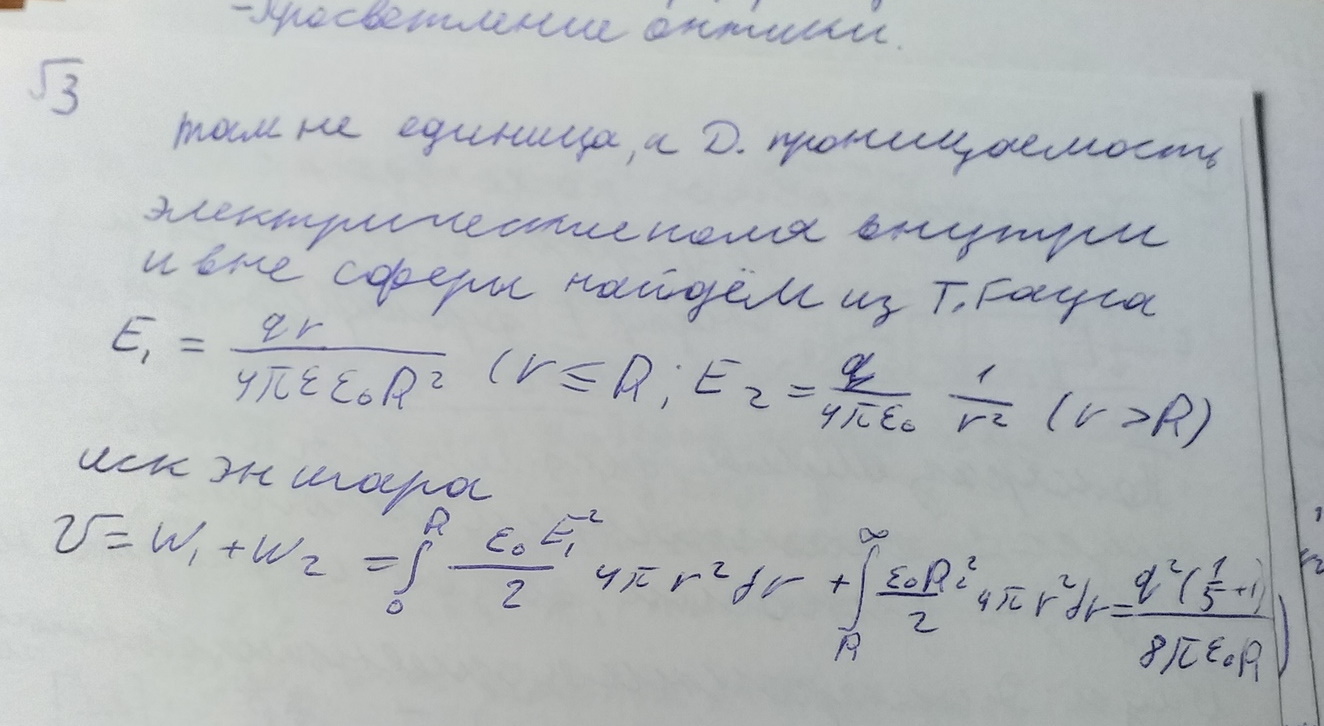 -Просветление оптики.
√3
там не единица, а Д. проницаемость
электрические поля внутри
и вне сферы найдём из Т. Гаусса
E₁ = qr / 4πεε₀R² (r ≤ R; E₂ = q / 4πε₀ 1 / r² (r > R)
иск эн шара
U = W₁ + W₂ = ∫₀ᴿ ε₀E₁² / 2 4πr²dr + ∫_R^∞ ε₀E₂² / 2 4πr²dr = q²(1/5 + 1) / 8πε₀R